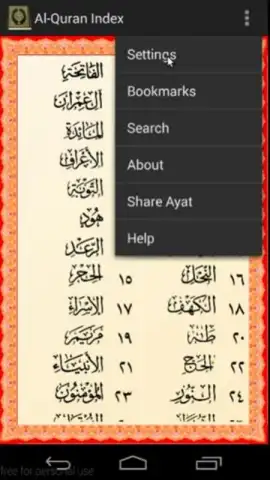 Al-Quran Index
Settings
Bookmarks
Search
About
Share Ayat
Help
الفاتحة
آل عمران
المائدة
الأعراف
التوبة
هود
الرعد
الحجر ١٥ النحل ١٦
الإسراء ١٧ الكهف ١٨
مريم ١٩ طه ٢٠
الأنبياء ٢١ الحج ٢٢
المؤمنون ٢٣ النور ٢٤
free for personal use